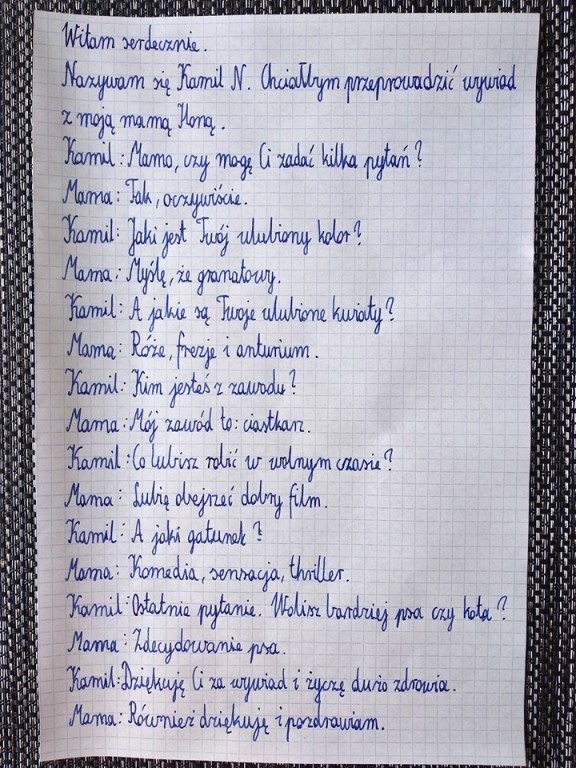 Witam serdecznie.
Nazywam się Kamil N. Chciałbym przeprowadzić wywiad
z moją mamą Iloną.
Kamil: Mamo, czy mogę Ci zadać kilka pytań?
Mama: Tak, oczywiście.
Kamil: Jaki jest Twój ulubiony kolor?
Mama: Myślę, że granatowy.
Kamil: A jakie są Twoje ulubione kwiaty?
Mama: Róże, frezje i anturium.
Kamil: Kim jesteś z zawodu?
Mama: Mój zawód to: ciastkarz.
Kamil: Co lubisz robić w wolnym czasie?
Mama: Lubię obejrzeć dobry film.
Kamil: A jaki gatunek?
Mama: Komedia, sensacja, thriller.
Kamil: Ostatnie pytanie. Wolisz bardziej psa czy kota?
Mama: Zdecydowanie psa.
Kamil: Dziękuję Ci za wywiad i życzę dużo zdrowia.
Mama: Również dziękuję i pozdrawiam.